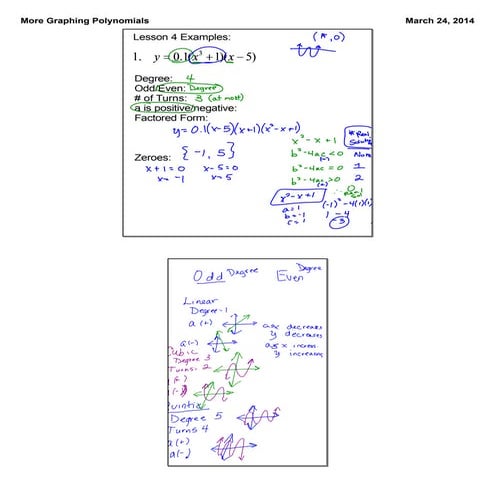 More Graphing Polynomials
March 24, 2014
Lesson 4 Examples:
(#, 0)
1. y = 0.1(x³ + 1)(x − 5)
Degree: 4
Odd/Even: Degree
# of Turns: 3 (at most)
a is positive/negative:
Factored Form:
y = 0.1(x-5)(x+1)(x²-x+1)
Zeroes: {-1, 5}
x+1=0 x-5=0
x=-1 x=5
# Real
x²-x+1
b²-4ac<0 None
(-)
b²-4ac=0 1
b²-4ac>0 2
(+)
x²-x+1
a=1
b=-1
c=1
(-1)²-4(1)(1)
1-4
-3
Odd Degree
Even Degree
Linear
Degree-1
a(+)
as x decreases
y decreases
a(-)
as x increas.
y increasing
Cubic
Degree 3
Turns: 2
(+)
(-)
Quintic
Degree 5
Turns 4
a(+)
a(-)